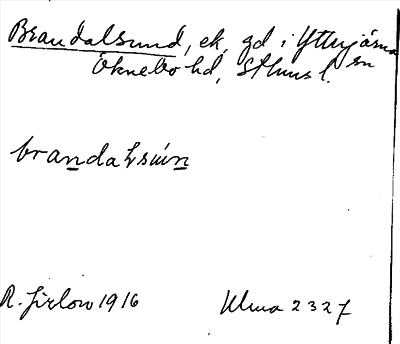 Brandalsund, ek, gd i Ytterjärna sn
Öknebo hd, Sthms l.
brandaLsún
R. Jirlow 1916 Ulma 2327